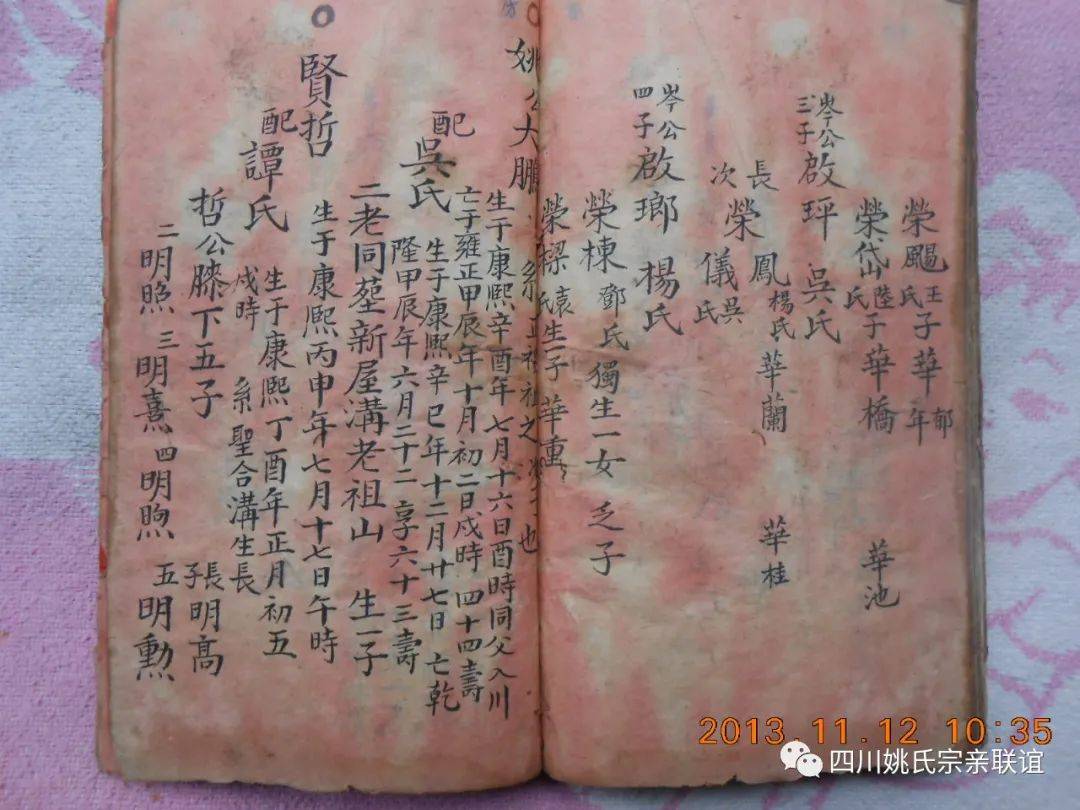 榮颺王氏子華年 郁
榮岱陸氏子華橋 華池
岑公三子啟玶 吳氏
長榮鳳楊氏華蘭 華桂
次儀吳氏
岑公四子啟瑯 楊氏
榮棟鄧氏獨生一女乏子
榮樑袁氏生一子華重
姚公大鵬 系正祖之次子也
生于康熙辛酉年七月十六日酉時同父入川
亡于雍正甲辰年十月初二日戍時四十四壽
配吳氏
生于康熙辛巳年十二月廿七日亡乾
隆甲辰年六月二十二享六十三壽
二老同塟新屋溝老祖山 生一子
賢哲
生于康熙丙申年七月十七日午時
配譚氏
生于康熙丁酉年正月初五
戍時 系聖合溝生長
哲公膝下五子 長子明高
二明照 三明熹 四明煦 五明勲
2013.11.12 10:35
四川姚氏宗亲联谊